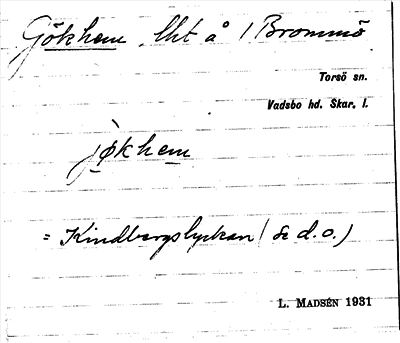 Gökhem, lht å / Brommö
Torsö sn.
Vadsbo hd. Skar, l.
jøkhem
= Kindbergslyckan (Se d.o.)
L. MADSÉN 1931